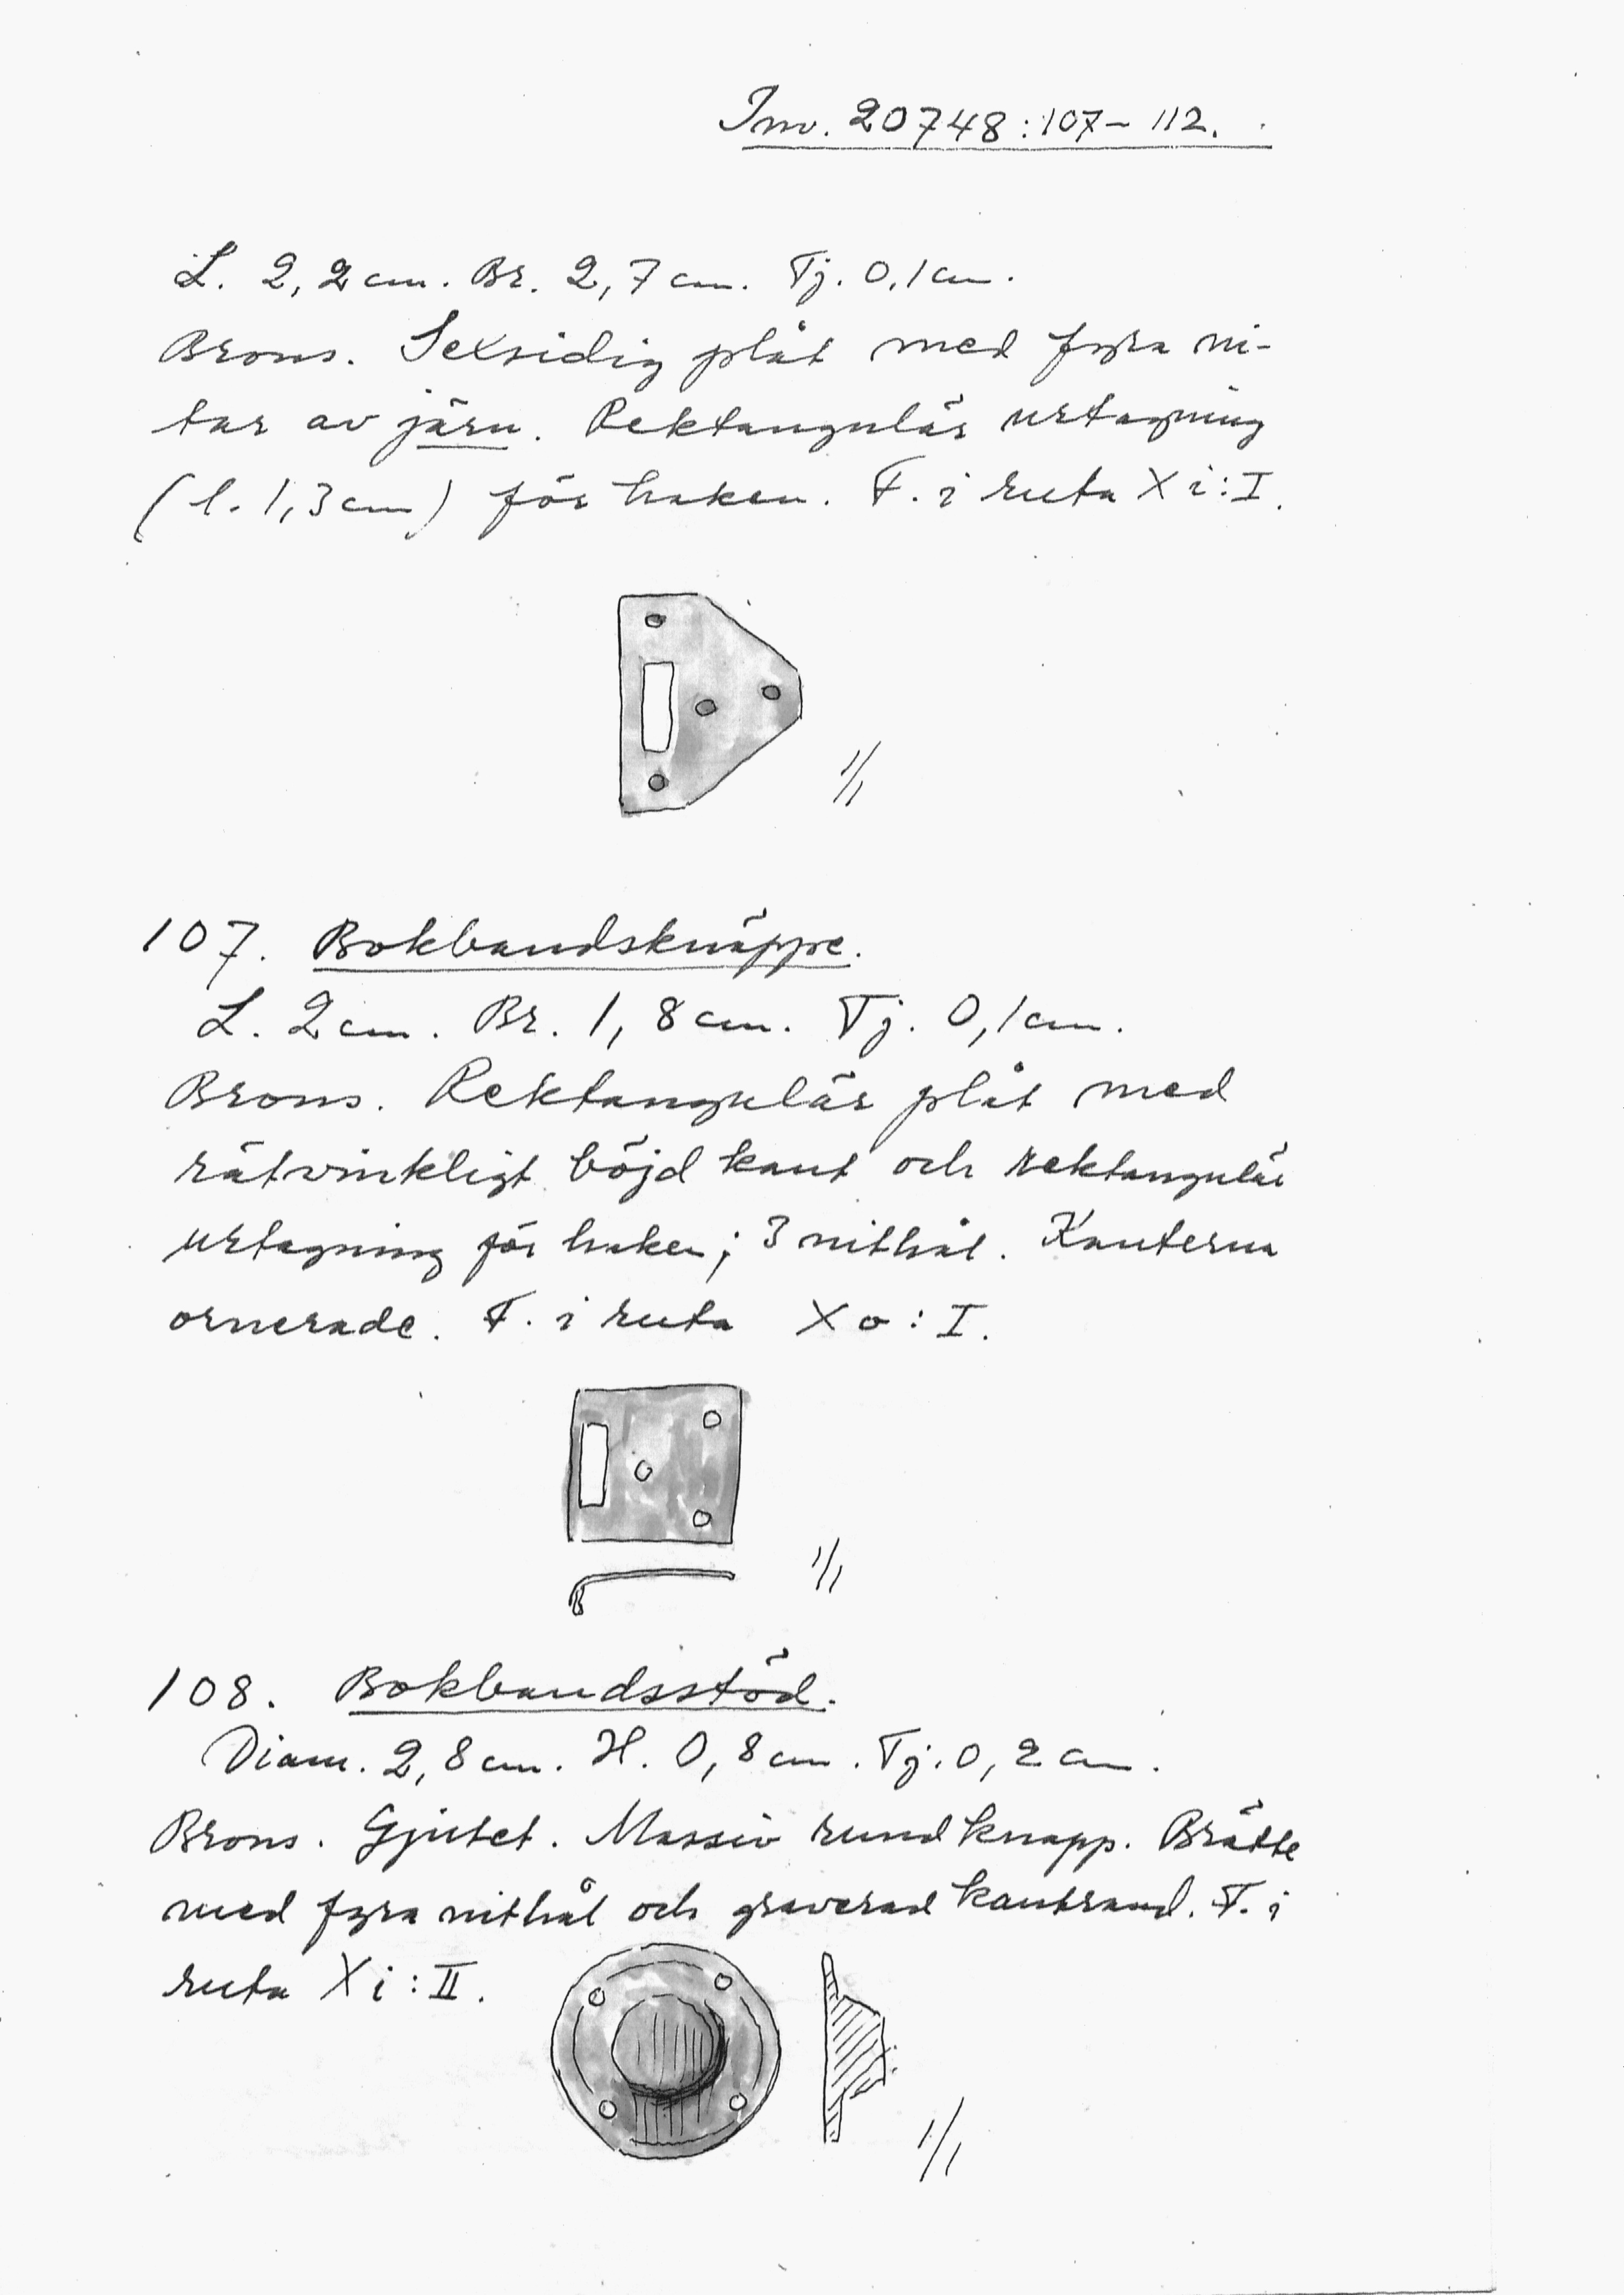 Inv. 20748:107–112.
L. 2,2 cm. Br. 2,7 cm. Tj. 0,1 cm.
Brons. Sexsidig plåt med fyra ni-
tar av järn. Rektangulär urtagning
(l. 1,3 cm) för haken. F. i ruta Xi:I.
1/1
107. Bokbandsknäppe.
L. 2 cm. Br. 1,8 cm. Tj. 0,1 cm.
Brons. Rektangulär plåt med
rätvinkligt böjd kant och rektangulär
urtagning för haken; 3 nithål. Kanterna
ornerade. F. i ruta Xo:I.
1/1
108. Bokbandsstöd.
Diam. 2,8 cm. H. 0,8 cm. Tj. 0,2 cm.
Brons. Gjutet. Massiv rund knapp. Brätte
med fyra nithål och graverad kantrand. F. i
ruta Xi:II.
1/1